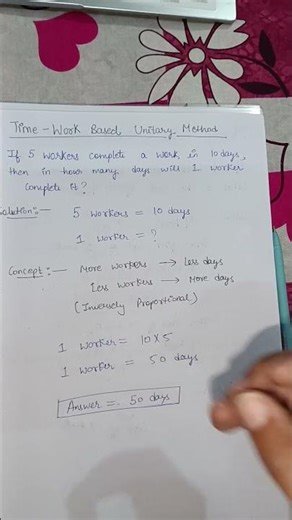 Time - Work Based Unitary Method
If 5 workers complete a work in 10 days,
then in how many days will 1 worker
complete it?
Solution:-
5 workers = 10 days
1 worker = ?
Concept:- More workers → Less days
Less workers → More days
(Inversely Proportional)
1 worker = 10 x 5
1 worker = 50 days
Answer = 50 days